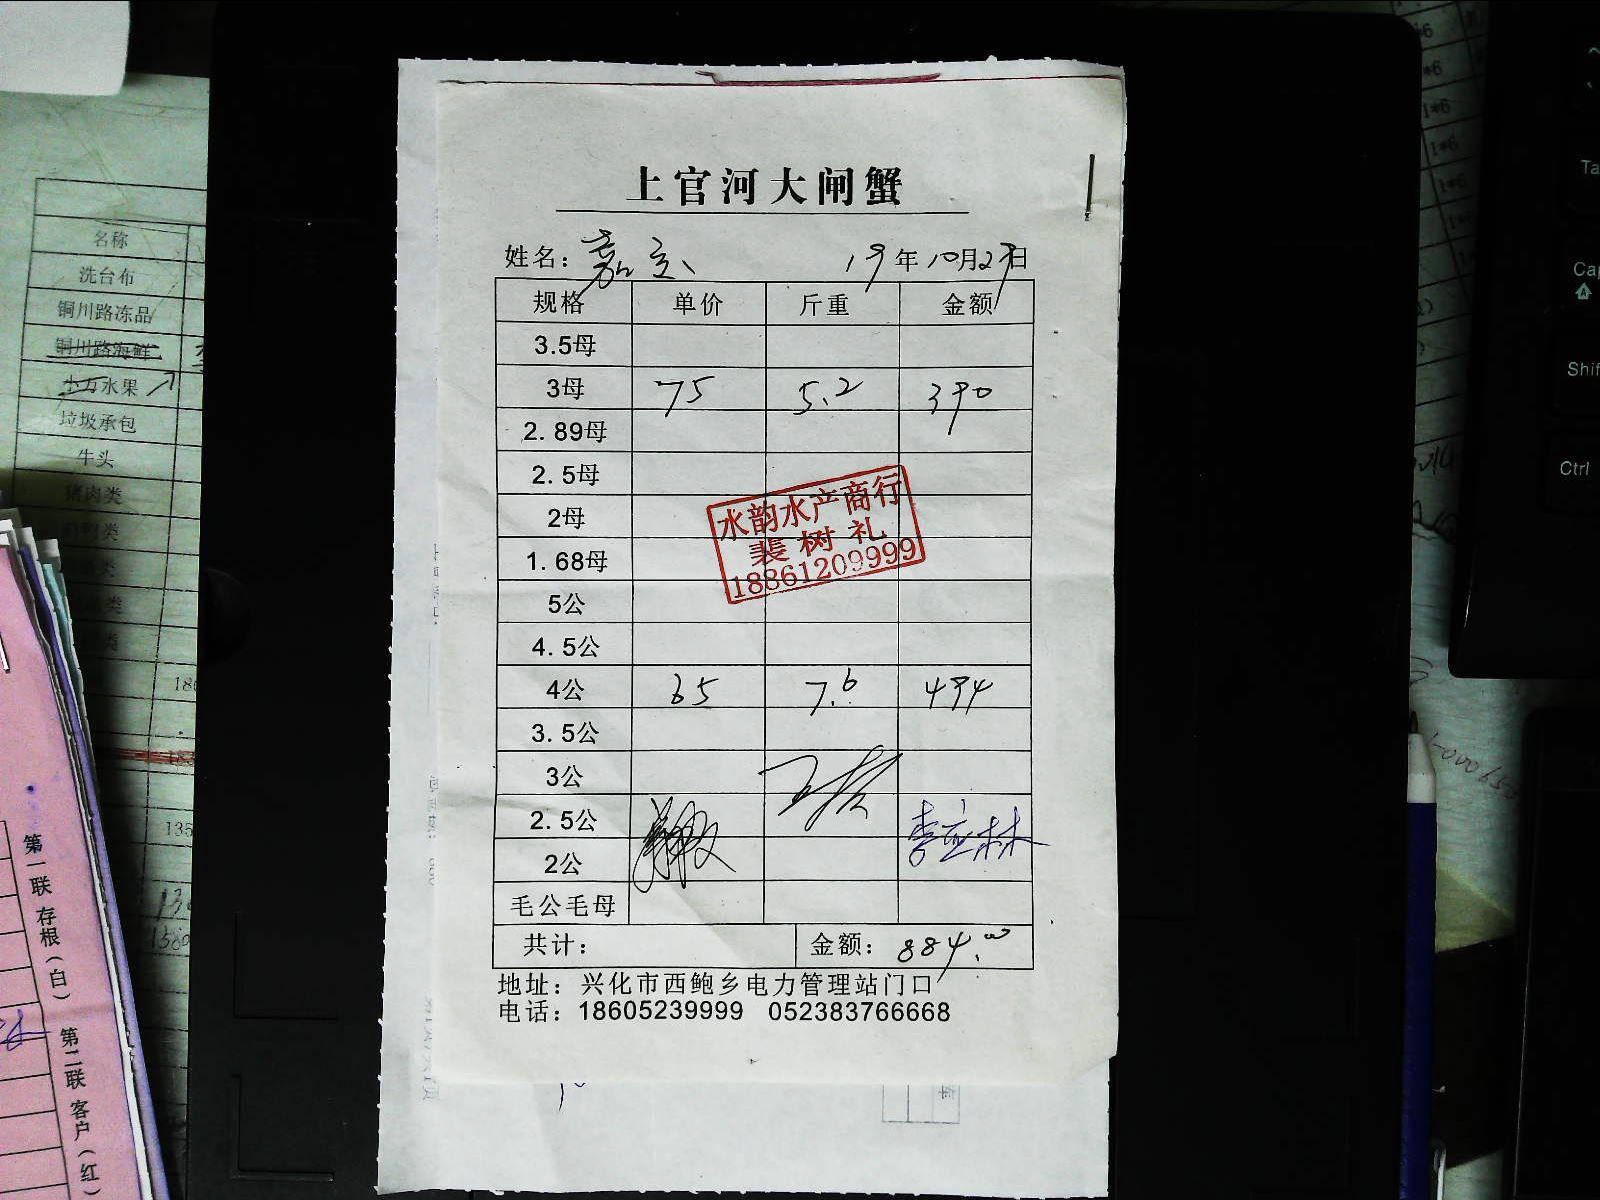 上官河大闸蟹
姓名：嘉宾 19年10月29日
规格 单价 斤重 金额
3.5母
3母 75 5.2 390
2.89母
2.5母
2母
1.68母
5公
4.5公
4公 65 7.6 494
3.5公
3公
2.5公 李应林
2公
毛公毛母
共计： 金额：884.00
地址：兴化市西鲍乡电力管理站门口
电话：18605239999 052383766668
水韵水产商行
裴树礼
18861209999
名称
洗台布
铜川路冻品
铜川路海鲜
水果
垃圾承包
牛头
猪肉类
第一联 存根（白）
第二联 客户（红）
Shif
Ctrl